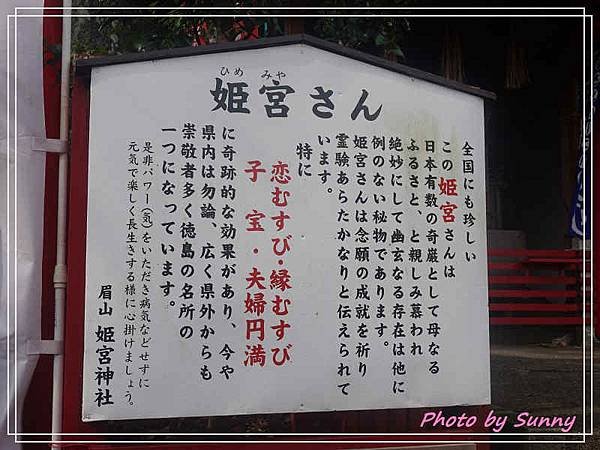 ひめ みや
姫宮さん
全国にも珍しい
この姫宮さんは
日本有数の奇巌として母なる
ふるさと、と親しみ慕われ
絶妙にして幽玄なる存在は他に
例のない秘物であります。
姫宮さんは念願の成就を祈り
霊験あらたかなりと伝えられて
います。
特に
恋むすび・縁むすび
子宝・夫婦円満
に奇跡的な効果があり、今や
県内は勿論、広く県外からも
崇敬者多く徳島の名所の
一つになっています。
是非パワー(気)をいただき病気などせずに
元気で楽しく長生きする様に心掛けましょう。
眉山 姫宮神社
Photo by Sunny